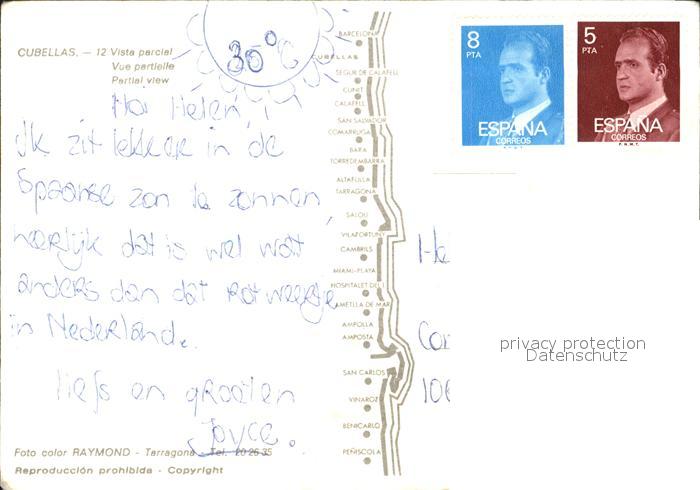 CUBELLAS. — 12 Vista parcial
Vue partielle
Partial view
30°C
Hoi Helen,
Ik zit lekker in de
Spaanse zon te zonnen
heerlijk dat is wel wat
anders dan dat rotweertje
in Nederland.
liefs en groeten
Joyce.
Foto color RAYMOND - Tarragona - Tel. 20 26 35
Reproducción prohibida - Copyright
BARCELONA
CUBELLAS
SEGUR DE CALAFELL
CUNIT
CALAFELL
SAN SALVADOR
COMARRUGA
BARA
TORREDEMBARRA
ALTAFULLA
TARRAGONA
SALOU
VILAFORTUNY
CAMBRILS
MIAMI-PLAYA
HOSPITALET DEL I.
AMETLLA DE MAR
AMPOLLA
AMPOSTA
SAN CARLOS
VINAROZ
BENICARLO
PEÑISCOLA
8
PTA
ESPAÑA
CORREOS
F.N.M.T.
5
PTA
ESPAÑA
CORREOS
F.N.M.T.
He
Cor
106
privacy protection
Datenschutz